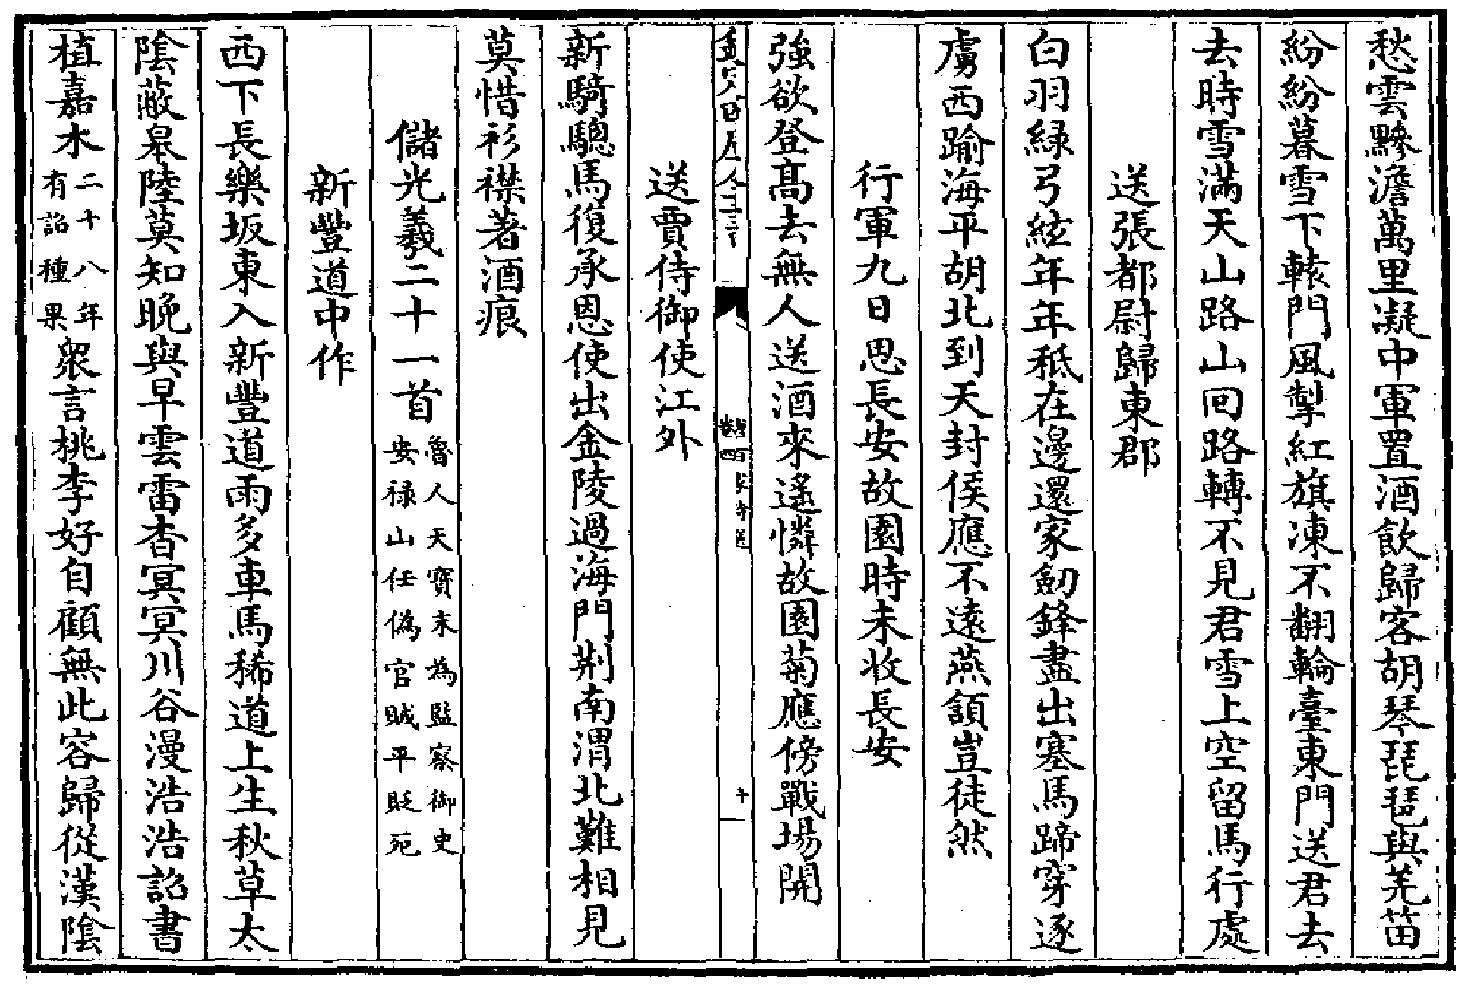 愁雲黲澹萬里凝中軍置酒飲歸客胡琴琵琶與羌笛
紛紛暮雪下轅門風掣紅旗凍不翻輪臺東門送君去
去時雪滿天山路山回路轉不見君雪上空留馬行處
送張都尉歸東郡
白羽緑弓絃年年秖在邊還家劒鋒盡出塞馬蹄穿逐
虜西踰海平胡北到天封侯應不遠燕頷豈徒然
行軍九日思長安故園時未收長安
強欲登髙去無人送酒來遙憐故園菊應傍戰場開
送賈侍御使江外
新騎驄馬復承恩使出金陵過海門荆南渭北難相見
莫惜衫襟著酒痕
儲光羲二十一首魯人天寶末為監察御史安禄山任偽官賊平貶死
新豐道中作
西下長樂坂東入新豐道雨多車馬稀道上生秋草太
隂蔽皐陸莫知晚與早雲雷杳冥冥川谷漫浩浩詔書
植嘉木二十八年有詔種果衆言桃李好自顧無此容歸從漢隂